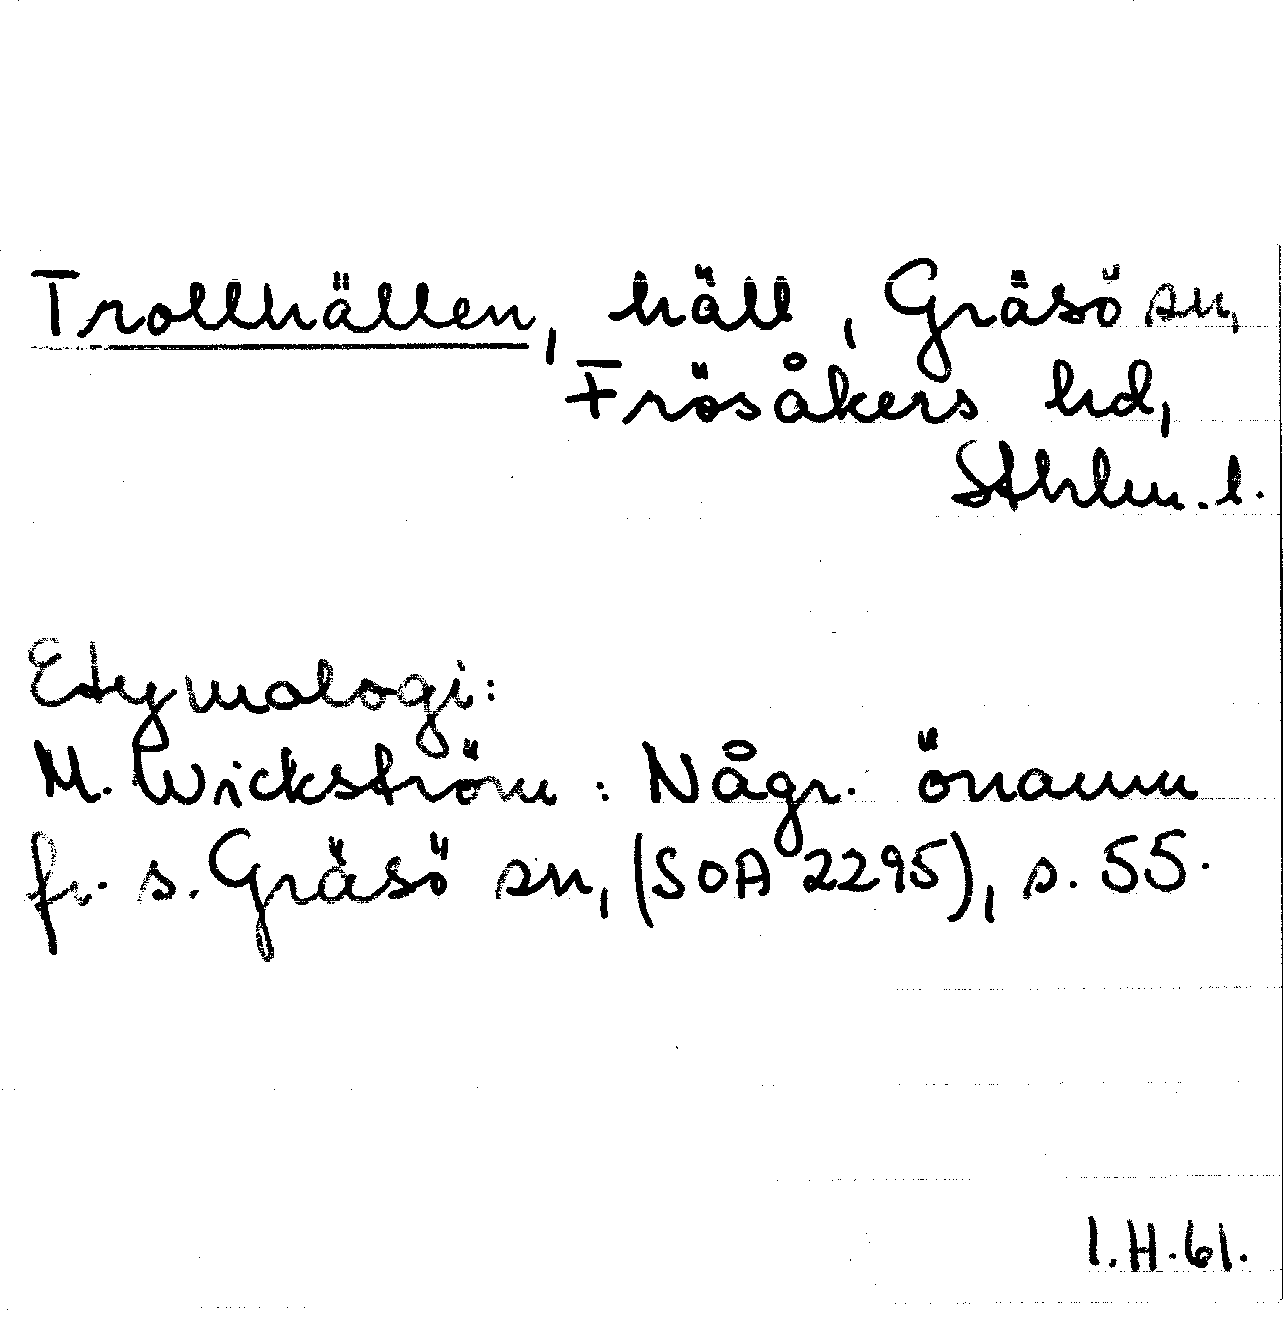 Trollhällen, häll, Gräsö sn,
Frösåkers hd,
Sthlm. l.
Etymologi:
M. Wickström: Någr. önamn
fr. s. Gräsö sn, (SOA 2295), s. 55.
I.H.61.